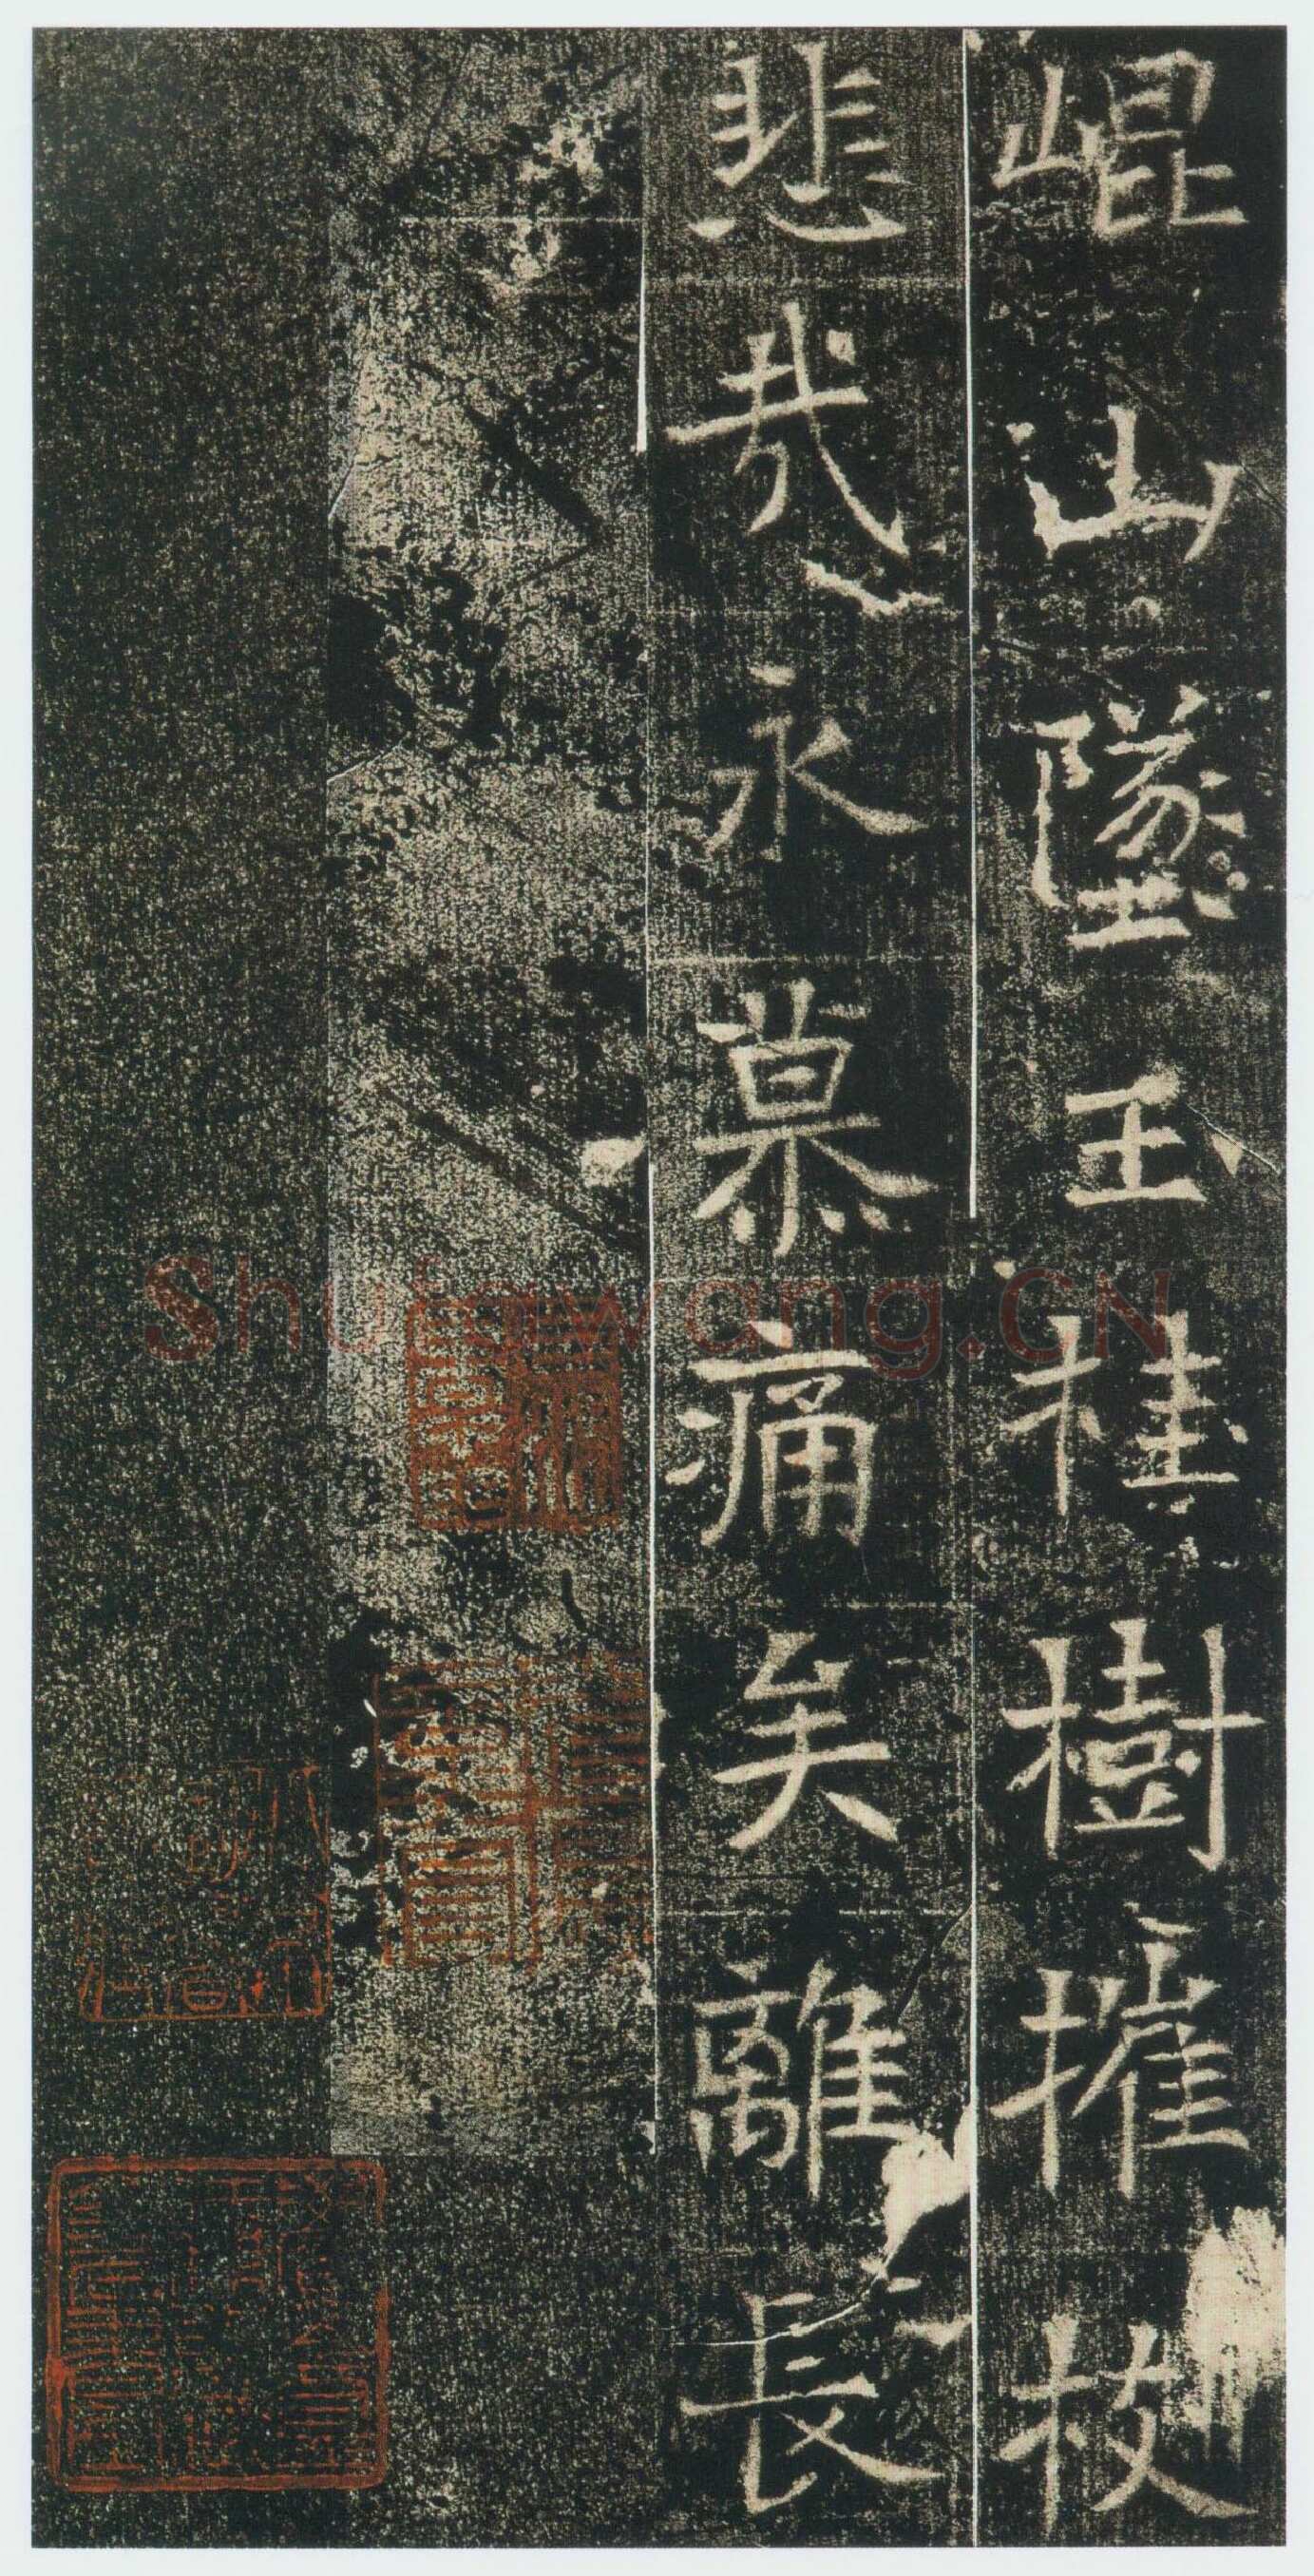 崐山墜玉桂樹摧枝
悲哉永慕痛矣離長
Shufawang.CN